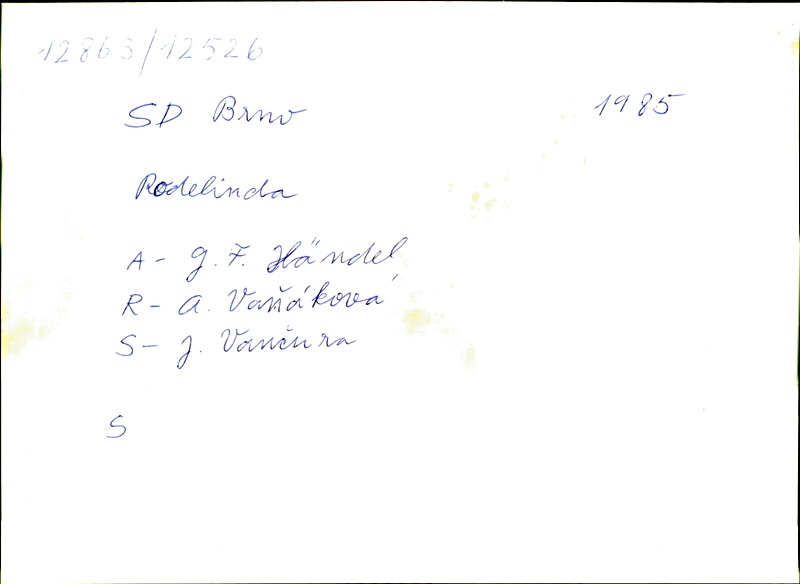 12863/12526
SD Brno 1985
Rodelinda
A - G. F. Händel
R - A. Vaňáková
S - J. Vančura
S